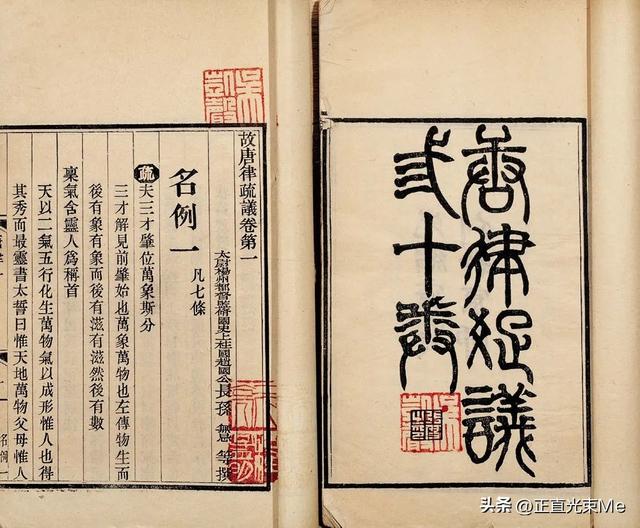 唐律疏議
弎十卷
故唐律疏議卷第一
太尉揚州都督監脩國史上柱國趙國公長孫無忌等撰
名例一 凡七條
疏夫三才肇位萬象斯分
三才解見前肇始也萬象萬物也左傳物生而
後有象有象而後有滋有滋然後有數
稟氣含靈人爲稱首
天以二氣五行化生萬物氣以成形惟人也得
其秀而最靈書太誓曰惟天地萬物父母惟人
名例一
头条 @正直光束Me